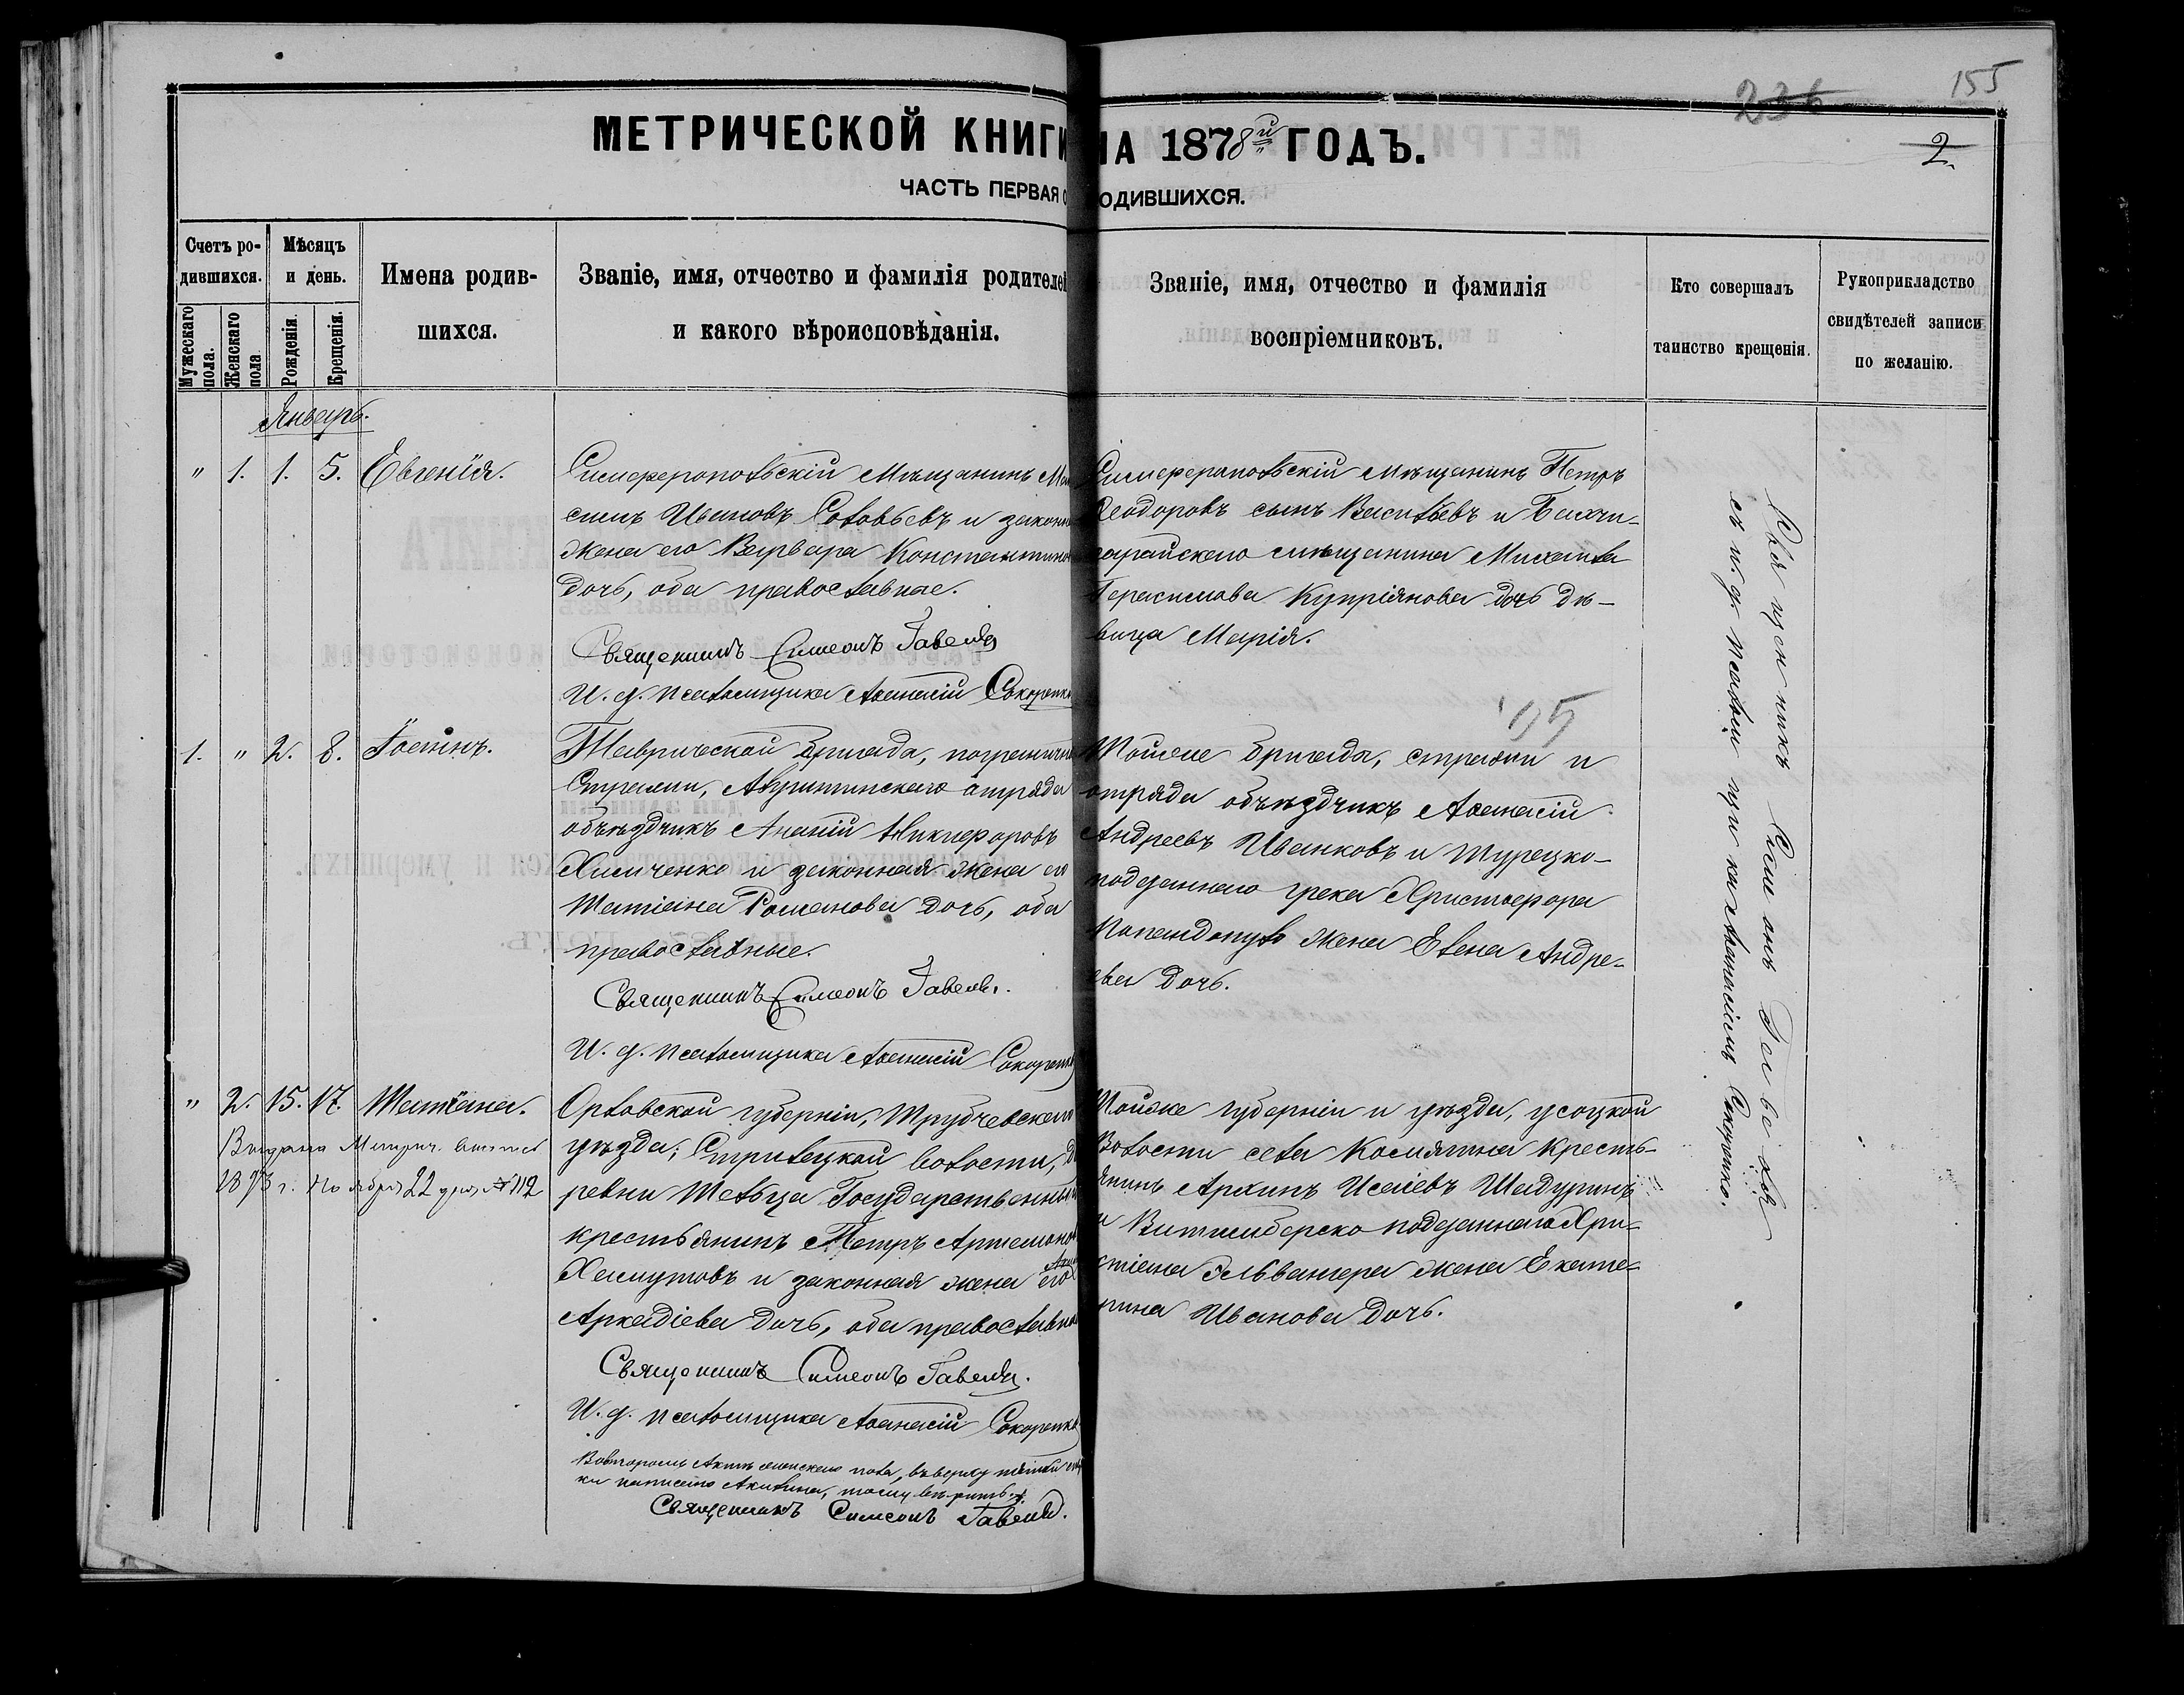 155
236
2.
МЕТРИЧЕСКОЙ КНИГИ НА 1878й ГОДЪ.
ЧАСТЬ ПЕРВАЯ О РОДИВШИХСЯ.
Счетъ ро-
дившихся.
Мужескаго пола.
Женскаго пола
Мѣсяцъ
и день.
Рожденія.
Крещенія.
Имена родив-
шихся.
Званіе, имя, отчество и фамилія родителей
и какого вѣроисповѣданія.
Званіе, имя, отчество и фамилія
воспріемниковъ.
Кто совершалъ
таинство крещенія.
Рукоприкладство
свидѣтелей записи
по желанію.
Январь.
" 1. 1. 5. Евгенія.
Симферопольскій мѣщанинъ
Ивановъ Соловьевъ и законн
жена его Варвара Константинов
дочь, оба православные.
Священникъ Симеонъ
И. д. псаломщика Аѳанасій Сокоренко
Симферопольскій мѣщанинъ Петръ
Ѳеодоровъ сынъ Васильевъ и Бахчи-
сарайскаго мѣщанина Михаила
Герасимова Купріянова дочь дѣ-
вица Марія.
1. " 2. 8. Іоаннъ.
Таврической бригады, пограничн
Стражи, отряда
объѣздчикъ Ананій Никифоровъ
Химченко и законная жена его
Татіана Романова дочь, оба
православные.
Священникъ Симеонъ
И. д. псаломщика Аѳанасій Сокоренко
Тойже бригады, стражи и
отряда объѣздчикъ Аѳанасій
Андреевъ Иванковъ и турецко-
подданнаго грека Христофора
Попандопуло жена Елена Андре-
ева дочь.
" 2. 15. 17. Татіана.
Выдана Метрич. выпись
Ноября 22 дня № 112
Орловской губерніи, Трубчевскаго
уѣзда, волости, де
ревни Государственный
крестьянинъ Петръ Артемонов
Хамутовъ и законная жена его
Аркадіева дочь, оба православн
Священникъ Симеонъ
И. д. псаломщика Аѳанасій Сокоренко
Во второмъ Актѣ женскаго пола, въ верху пятой стро
ки написано Акилина, тому вѣрить.
Священникъ Симеонъ
Тойже губерніи и уѣзда, усоцкой
Волости села Крестья
янинъ Архипъ Исаіевъ Шадуринъ
и Витимберско подданнаго Хри-
стіана жена Екате-
рина Иванова дочь.
Священникъ Симеонъ
съ и. д. псаломщика Аѳанасіемъ Сокоренко.